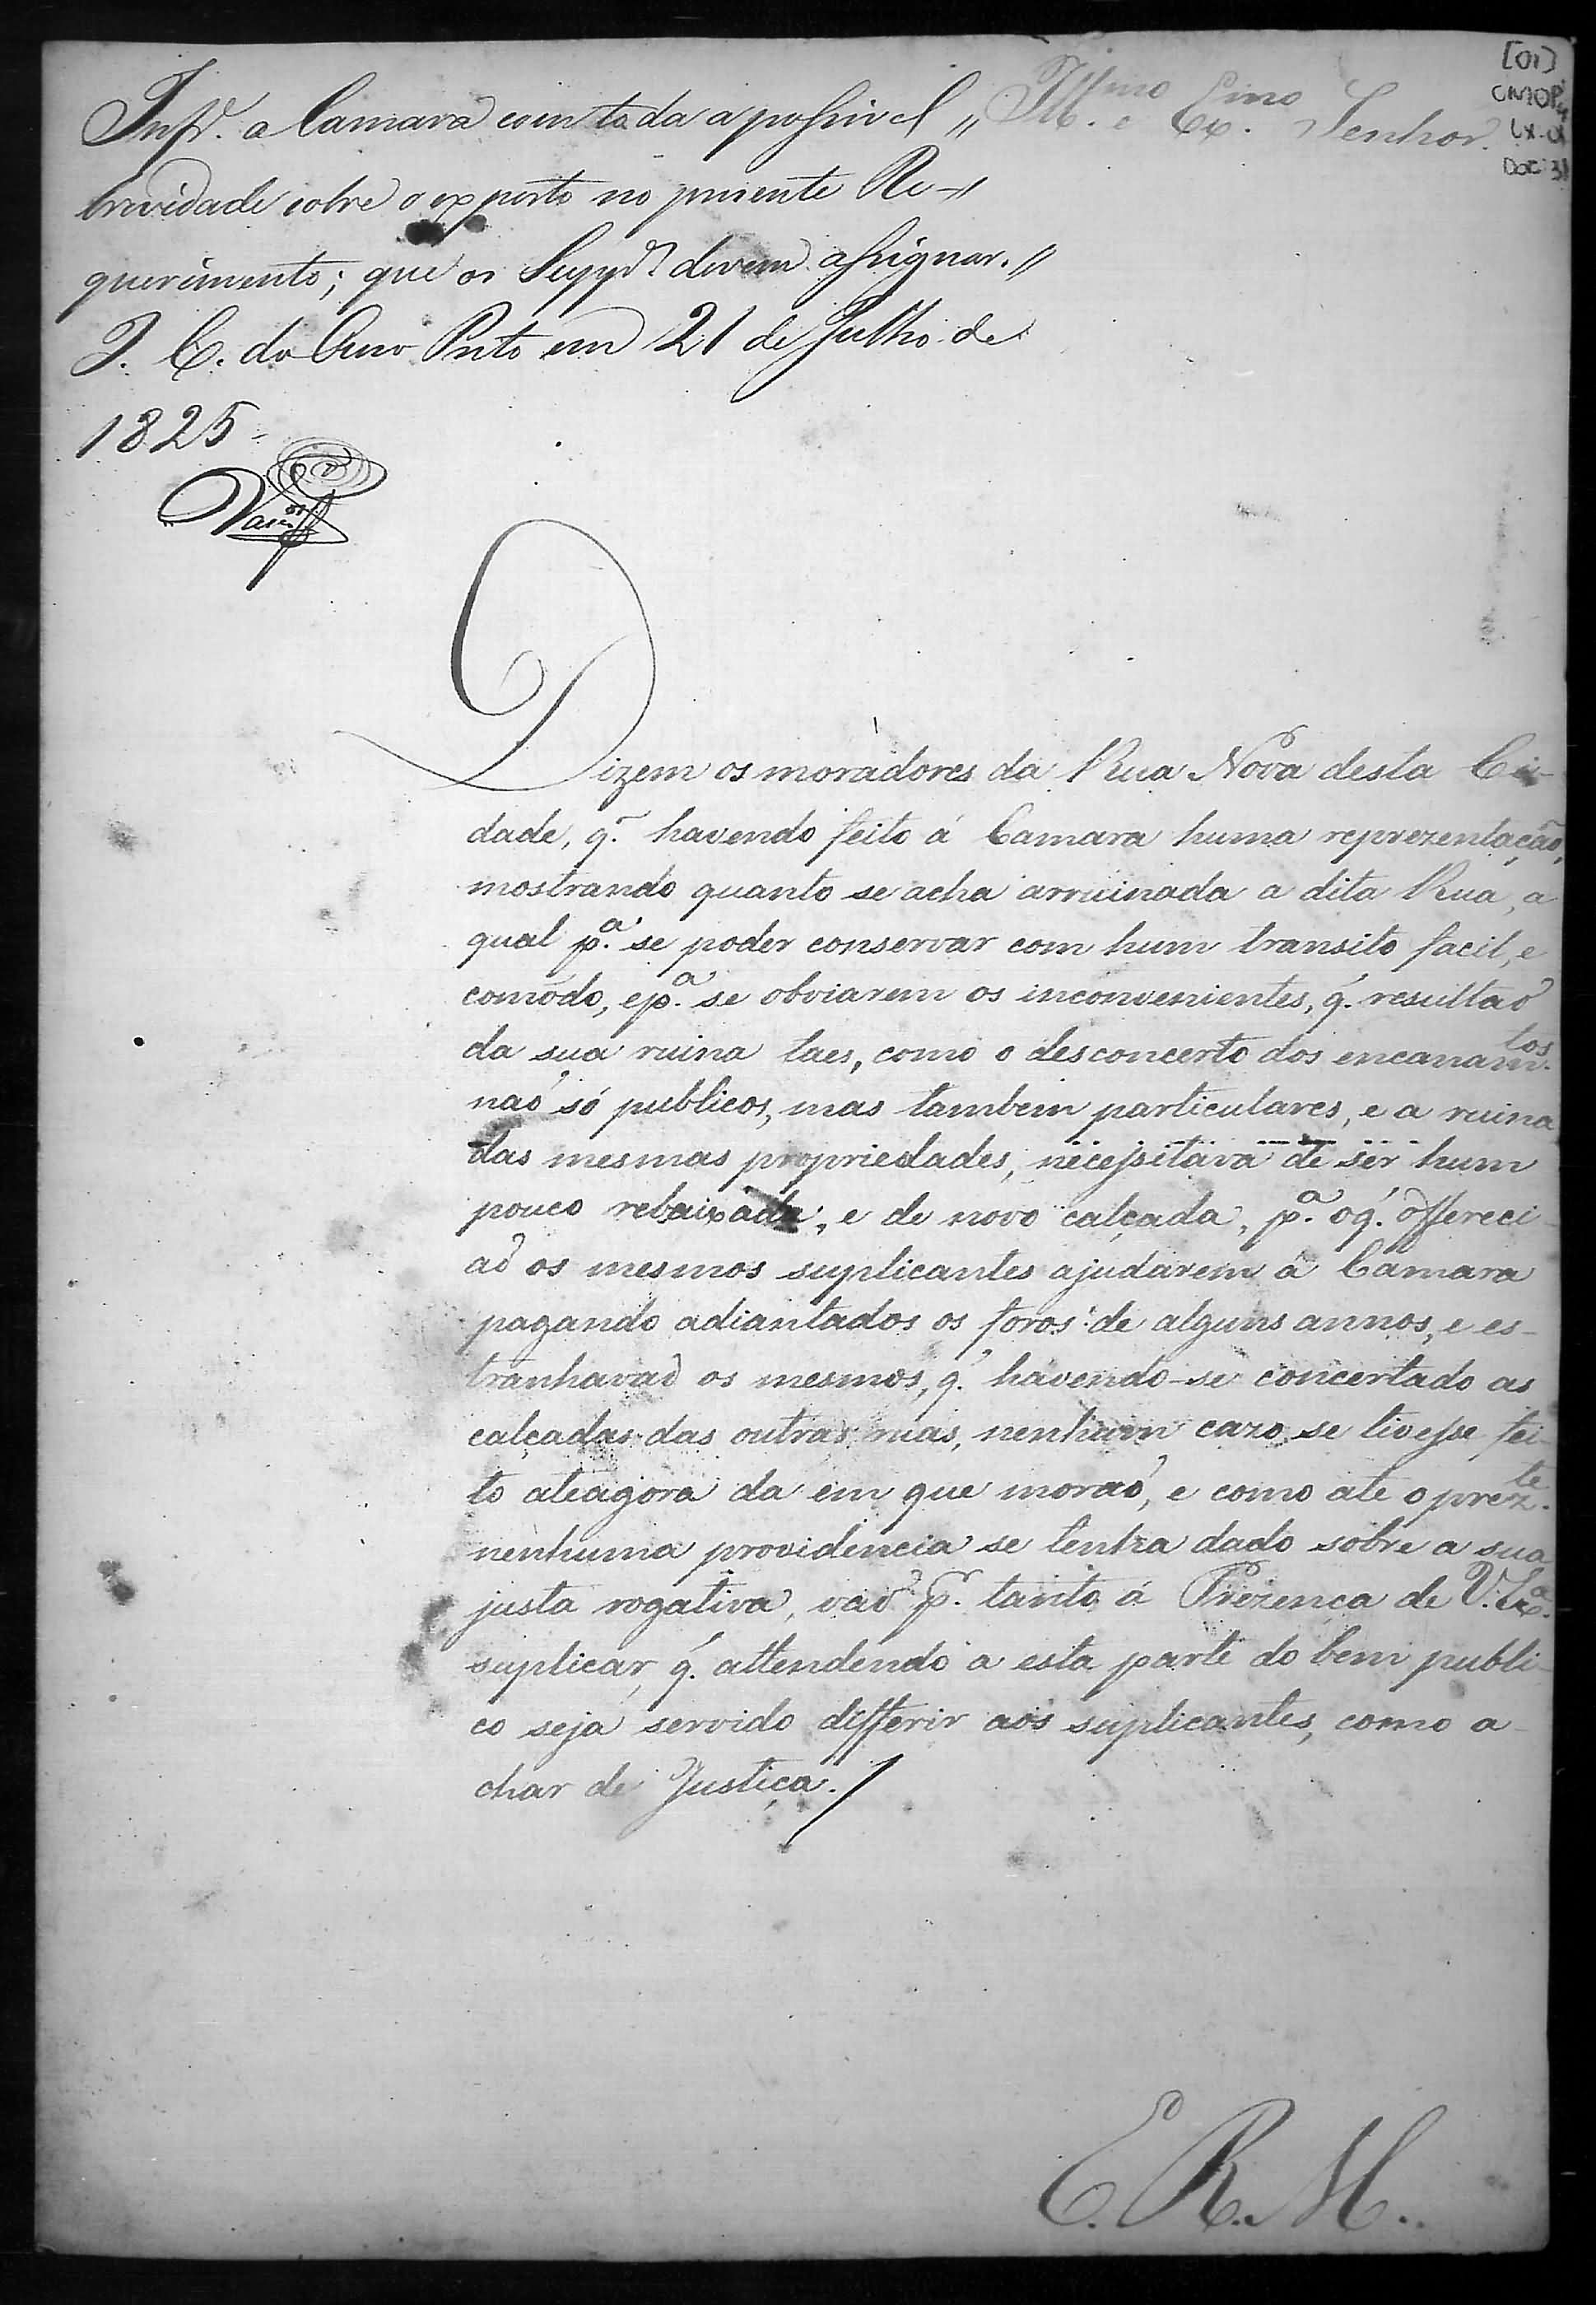 [01]
CMOP
Cx. 01
Doc: 31
Illmo. e Exmo. Senhor.
Infe. a Camara com toda a possivel //
brevidade sobre o exposto no prezente Re-//
querimento; que os Suppes. devem assignar.//
I. C. do Ouro Preto em 21 de Julho de
1825-
Vascos.
Dizem os moradores da Rua Nova desta Ci-
dade, q. havendo feito á Camara huma reprezentação,
mostrando quanto se acha arruinada a dita Rua, a
qual pa. se poder conservar com hum transito facil, e
comodo, e pa. se obviarem os inconvenientes, q. resultaõ
da sua ruina taes, como o desconcerto dos encanamtos.
naõ só publicos, mas tambem particulares, e a ruina
das mesmas propriedades, necessitava de ser hum
pouco rebaixada, e de novo calçada, pa. o q. offereci-
aõ os mesmos suplicantes ajudarem á Camara
pagando adiantados os foros de alguns annos, e es-
tranhavaõ os mesmos, q. havendo-se concertado as
calçadas das outras ruas, nenhum cazo se tivesse fei-
to ateagora da em que moraõ, e como até o prezte.
nenhuma providencia se tenha dado sobre a sua
justa rogativa, vaõ pr. tanto á Prezença de V. Exa.
suplicar, q. attendendo a esta parte do bem publi-
co seja servido differir aos suplicantes, como a-
char de Justiça./
E. R. M.